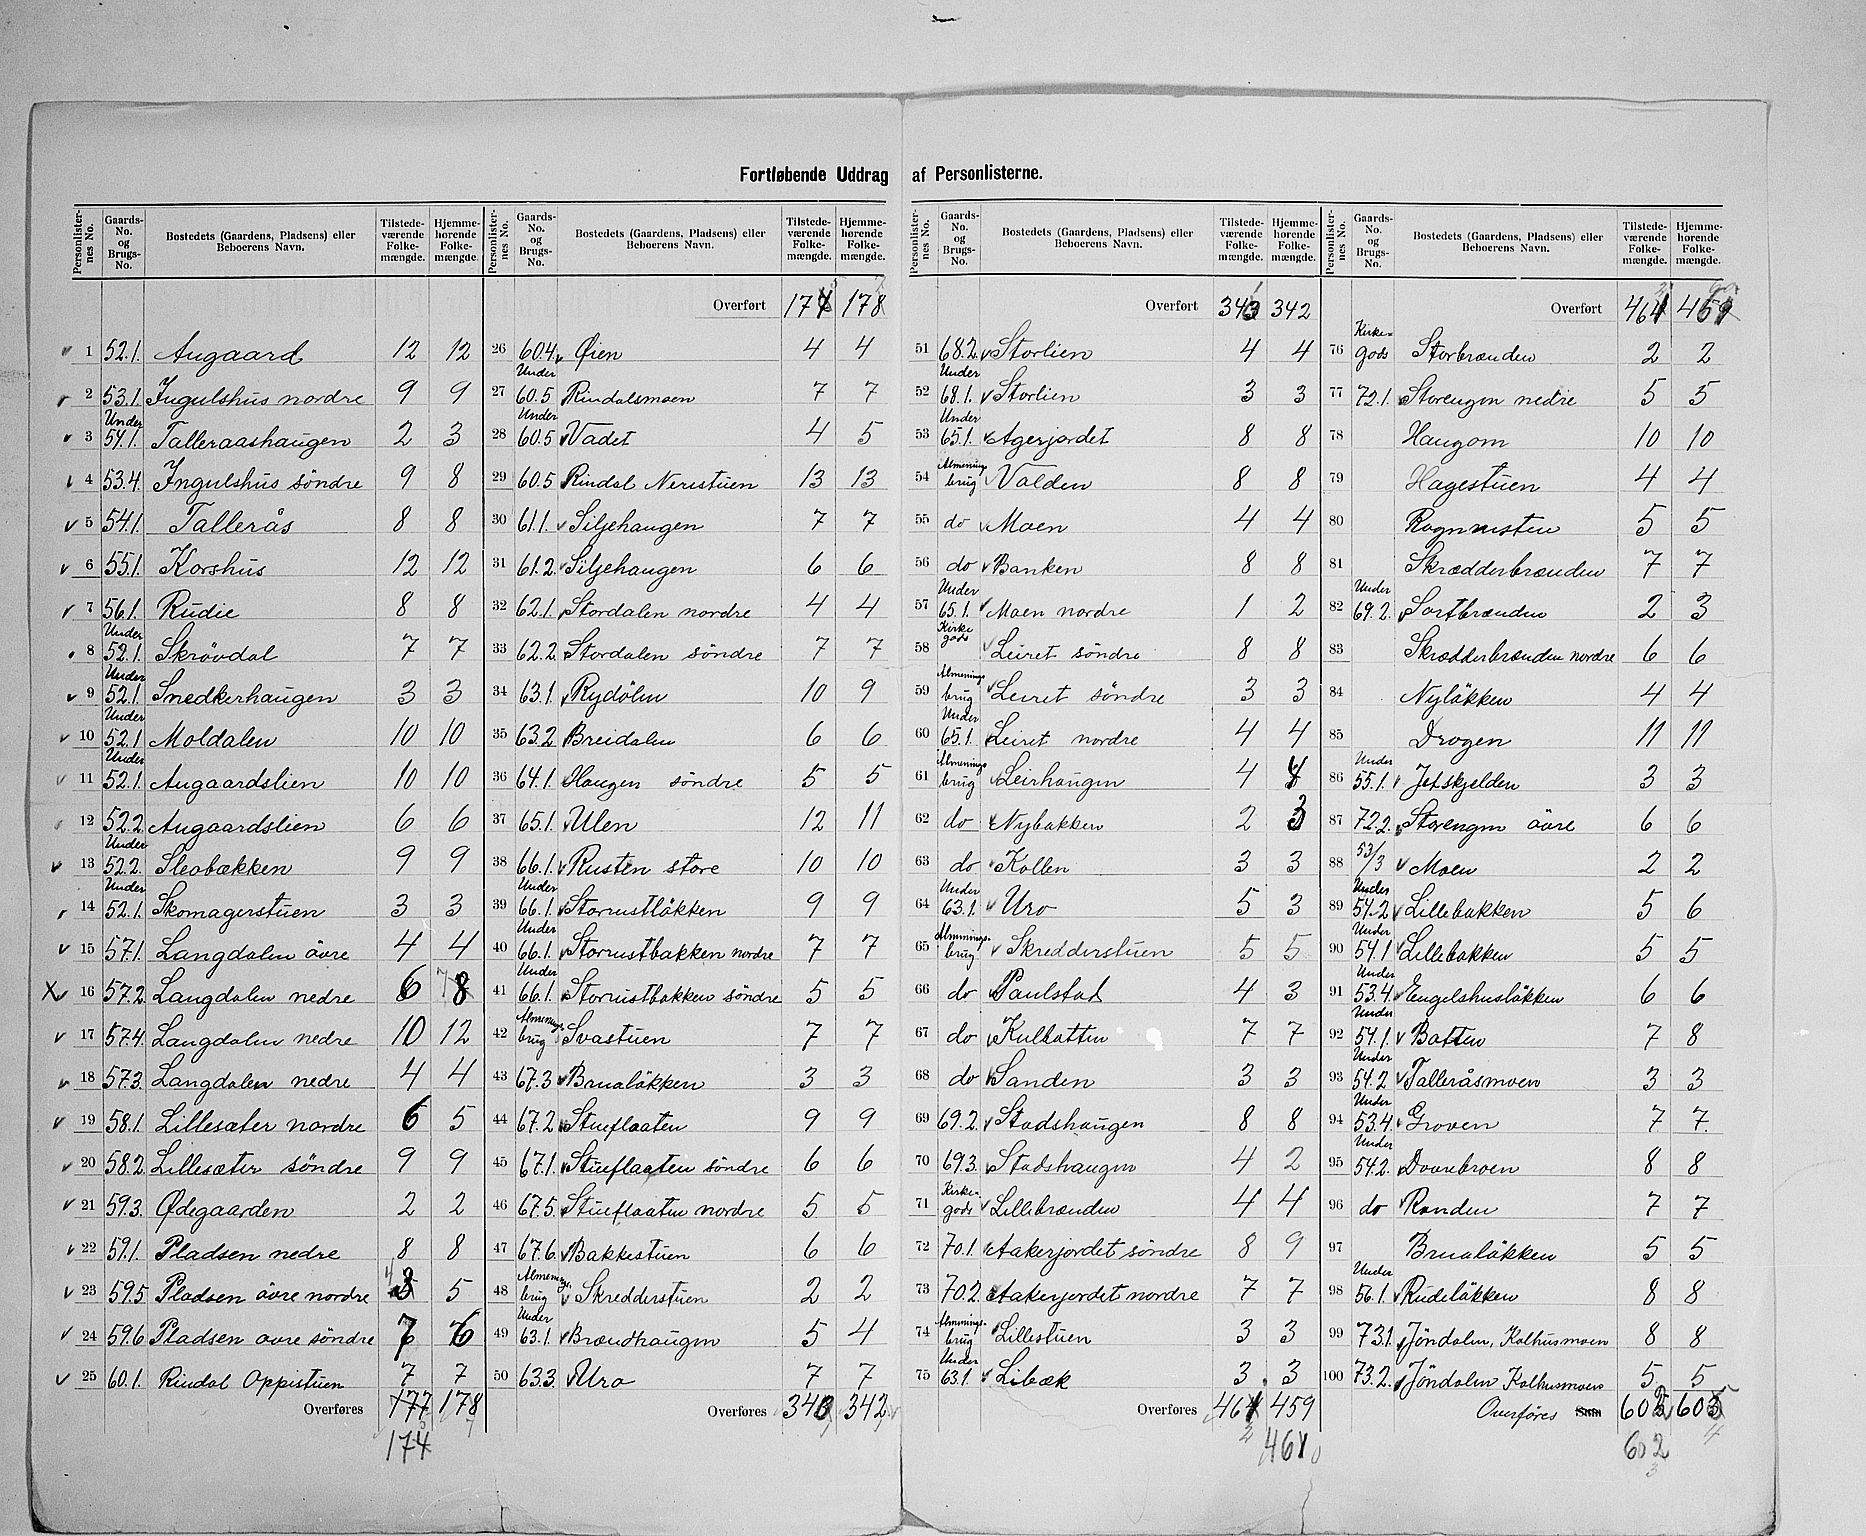 Fortløbende Uddrag af Personlisterne.
Personlisternes No. Gaards-No. og Brugs-No. Bostedets (Gaardens, Pladsens) eller Beboerens Navn. Tilstedeværende Folkemængde. Hjemmehørende Folkemængde.
1 52.1. Augaard 12 12
2 53.1. Ingulshus nordre 9 9
3 Under 54.1. Talleraashaugen 2 3
4 53.4. Ingulshus söndre 9 8
5 54.1. Tallerås 8 8
6 55.1. Korshus 12 12
7 56.1. Rudie 8 8
8 Under 52.1. Skrövdal 7 7
9 Under 52.1. Snedkerhaugen 3 3
10 Under 52.1 Moldalen 10 10
11 Under 52.1. Augaardslien 10 10
12 52.2. Augaardslien 6 6
13 Under 52.2. Sleabækken 9 9
14 Under 52.1. Skomagerstuen 3 3
15 57.1. Langdalen övre 4 4
X 16 57.2. Langdalen nedre 6 8
17 57.4. Langdalen nedre 10 12
18 57.3. Langdalen nedre 4 4
19 58.1. Lillesæter nordre 6 5
20 58.2. Lillesæter söndre 9 9
21 59.3. Ødegaarden 2 2
22 59.1. Pladsen nedre 8 8
23 59.5 Pladsen övre nordre 5
24 59.6 Pladsen övre söndre 7 6
25 60.1. Rindal Oppistuen 7 7
Overføres 177 178
174
Personlisternes No. Gaards-No. og Brugs-No. Bostedets (Gaardens, Pladsens) eller Beboerens Navn. Tilstedeværende Folkemængde. Hjemmehørende Folkemængde.
Overført 174 178
26 60.4. Øien 4 4
27 Under 60.5 Rindalsmoen 7 7
28 Under 60.5 Vadet 4 5
29 60.5 Rindal Neristuen 13 13
30 61.1. Siljehaugen 7 7
31 61.2. Siljehaugen 6 6
32 62.1. Stordalen nordre 4 4
33 62.2. Stordalen söndre 7 7
34 63.1. Rydölen 10 9
35 63.2 Breidalen 6 6
36 64.1. Haugen söndre 5 5
37 65.1. Ulen 12 11
38 66.1. Rusten store 10 10
39 Under 66.1. Storrustläkken 9 9
40 Under 66.1. Storrustbakken nordre 7 7
41 Under 66.1. Storrustbakken söndre 5 5
42 Almenings-brug Svastuen 7 7
43 67.3 Brualäkken 3 3
44 67.2 Stueflaaten 9 9
45 67.1. Stueflaaten söndre 6 6
46 67.5. Stueflaaten nordre 5 5
47 67.6. Bakkestuen 6 6
48 Almenings-brug Skredderstuen 2 2
49 Under 63.1. Brændhaugen 5 4
50 63.3. Uro 7 7
Overføres 343 342
Personlisternes No. Gaards-No. og Brugs-No. Bostedets (Gaardens, Pladsens) eller Beboerens Navn. Tilstedeværende Folkemængde. Hjemmehørende Folkemængde.
Overført 343 342
51 68.2. Storlien 4 4
52 Under 68.1. Storlien 3 3
53 Under 65.1. Agerjordet 8 8
54 Almenings-brug Valden 8 8
55 do Moen 4 4
56 do Banken 8 8
57 Under 65.1. Moen nordre 1 2
58 Kirke gods Leiret söndre 8 8
59 Almenings-brug Leiret söndre 3 3
60 Under 65.1. Leiret nordre 4 4
61 Almenings-brug Leirhaugen 4 4
62 do Nybakken 2 3
63 do Kollen 3 3
64 Under 63.1. Uro 5 3
65 Almenings-brug Skredderstuen 5 5
66 do Paulstad 4 3
67 do Kulbatten 7 7
68 do Sanden 3 3
69 69.2. Stadshaugen 8 8
70 69.3. Stadshaugen 4 2
71 Kirke-gods Lillebrænden 4 4
72 70.1. Aakerjordet söndre 8 9
73 70.2. Aakerjordet nordre 7 7
74 Almenings-brug Lillestuen 3 3
75 Under 63.1. Libæk 3 3
Overføres 461 459
461
Personlisternes No. Gaards-No. og Brugs-No. Bostedets (Gaardens, Pladsens) eller Beboerens Navn. Tilstedeværende Folkemængde. Hjemmehørende Folkemængde.
Overført 461 459
76 Kirke-gods Storbrænden 2 2
77 72.1. Storengen nedre 5 5
78 Haugom 10 10
79 Hagestuen 4 4
80 Rognnisten 5 5
81 Skrædderbrænden 7 7
82 Under 69.2. Sortbrænden 2 3
83 Skrædderbrænden nordre 6 6
84 Nyläkken 4 4
85 Drogen 11 11
86 Under 55.1. Jetskjelden 3 3
87 72.2. Storengen övre 6 6
88 53/3 Moen 2 2
89 Under 54.2 Lillebakken 5 6
90 Under 54.1 Lillebakken 5 5
91 Under 53.4. Engelshusläkken 6 6
92 Under 54.1. Batten 7 8
93 Under 54.2 Talleråsmoen 3 3
94 Under 53.4. Groven 7 7.
95 Under 54.2. Dovrebroen 8 8
96 do Randen 7 7
97 Brualäkken 5 5
98 Under 56.1. Rudeläkken 8 8
99 73.1. Jöndalen, Kolhusmoen 8 8
100 73.2. Jöndalen Kolhusmoen 5 5
Overføres Sum 602 605
602